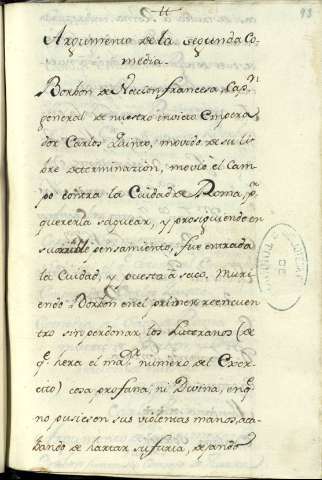 93
Argumento de la segunda Co-
media.
Borbon de Nacion francesa, Cap.n
general de nuestro invicto Empera-
dor Carlos Quinto, movido de su li-
bre determinazion, movió el Cam-
po contra la Ciudad de Roma, p.r
quererla saquear, y prosiguiendo en
su pensamiento, fue entrada
la Ciudad, y puesta a saco. Muri-
endo Borbon en el primer reencuen-
tro sin perdonar los Luteranos (de
q.e hera el ma.r número del Exer-
cito) cosa profana, ni Divina, en q.e
no pusiesen sus violentas manos, aca-
bando de hartar su furia, dejando